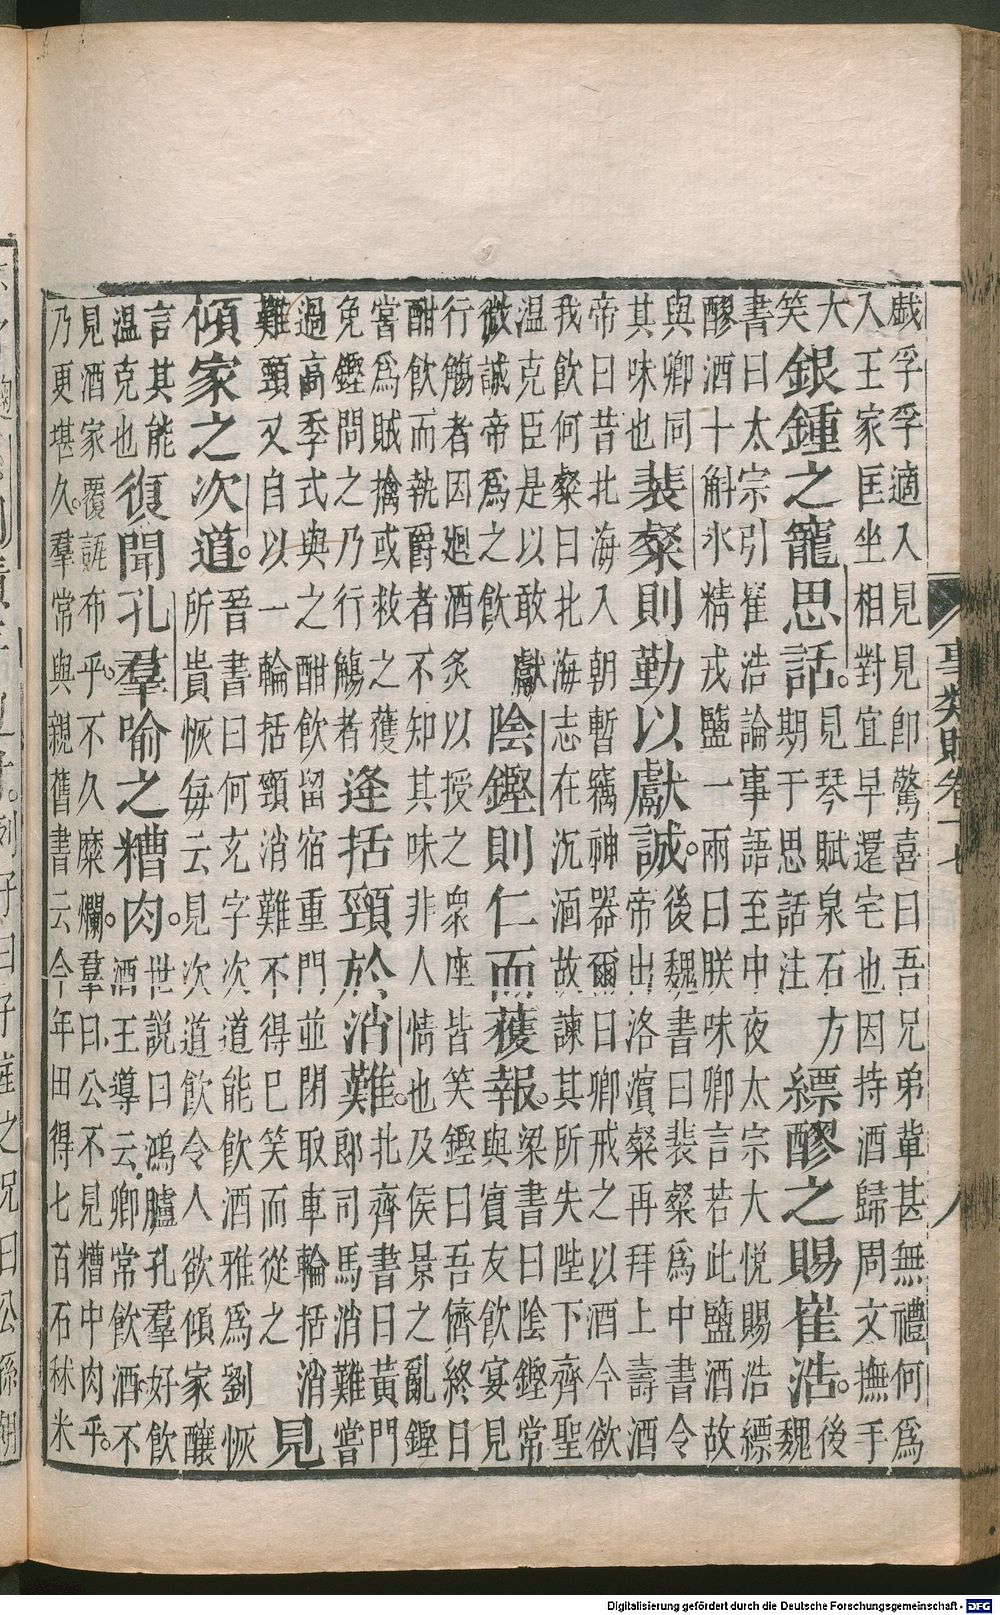 事類賦卷十七 八
戲孚孚適入見見卽驚喜曰吾兄弟輩甚無禮何為
入王家匡坐相對宜早還宅也因持酒歸周文撫手
大
笑
銀鍾之寵思話。
見琴賦泉石方
期于思話注
縹醪之賜崔浩。
後
魏
書曰太宗引崔浩論事語至中夜太宗大悅賜浩縹
醪酒十斛水精戎鹽一兩曰朕味卿言若此鹽酒故
與卿同
其味也
裴粲則勤以獻誠。
後魏書曰裴粲為中書令
帝出洛濱粲再拜上壽酒
帝曰昔北海入朝暫竊神器爾曰卿戒之以酒今欲
我飲何粲曰北海志在沉湎故諫其所失陛下齊聖
溫克臣是以敢獻
微誠帝為之飲
陰鏗則仁而獲報。
梁書曰陰鏗常
與賓友飲宴見
行觴者因廻酒炙以授之衆座皆笑鏗曰吾儕終日
酣飲而執爵者不知其味非人情也及侯景之亂鏗
嘗為賊擒或救之獲
免鏗問之乃行觴者
逢括頸於消難。
北齊書曰黃門
郎司馬消難嘗
過高季式與之酣飲留宿重門並閉取車輪括消
難頸又自以一輪括頸消難不得已笑而從之
見
傾家之次道。
晉書曰何充字次道能飲酒雅為劉恢
所貴恢每云見次道飲令人欲傾家釀
言其能
溫克也
復聞孔羣喻之糟肉。
世說曰鴻臚孔羣好飲
酒王導云卿常飲酒不
見酒家覆瓿布乎。不久糜爛。羣曰公不見糟中肉乎。
乃更堪久。羣常與親舊書云今年田得七百石秫米
Digitalisierung gefördert durch die Deutsche Forschungsgemeinschaft - DFG